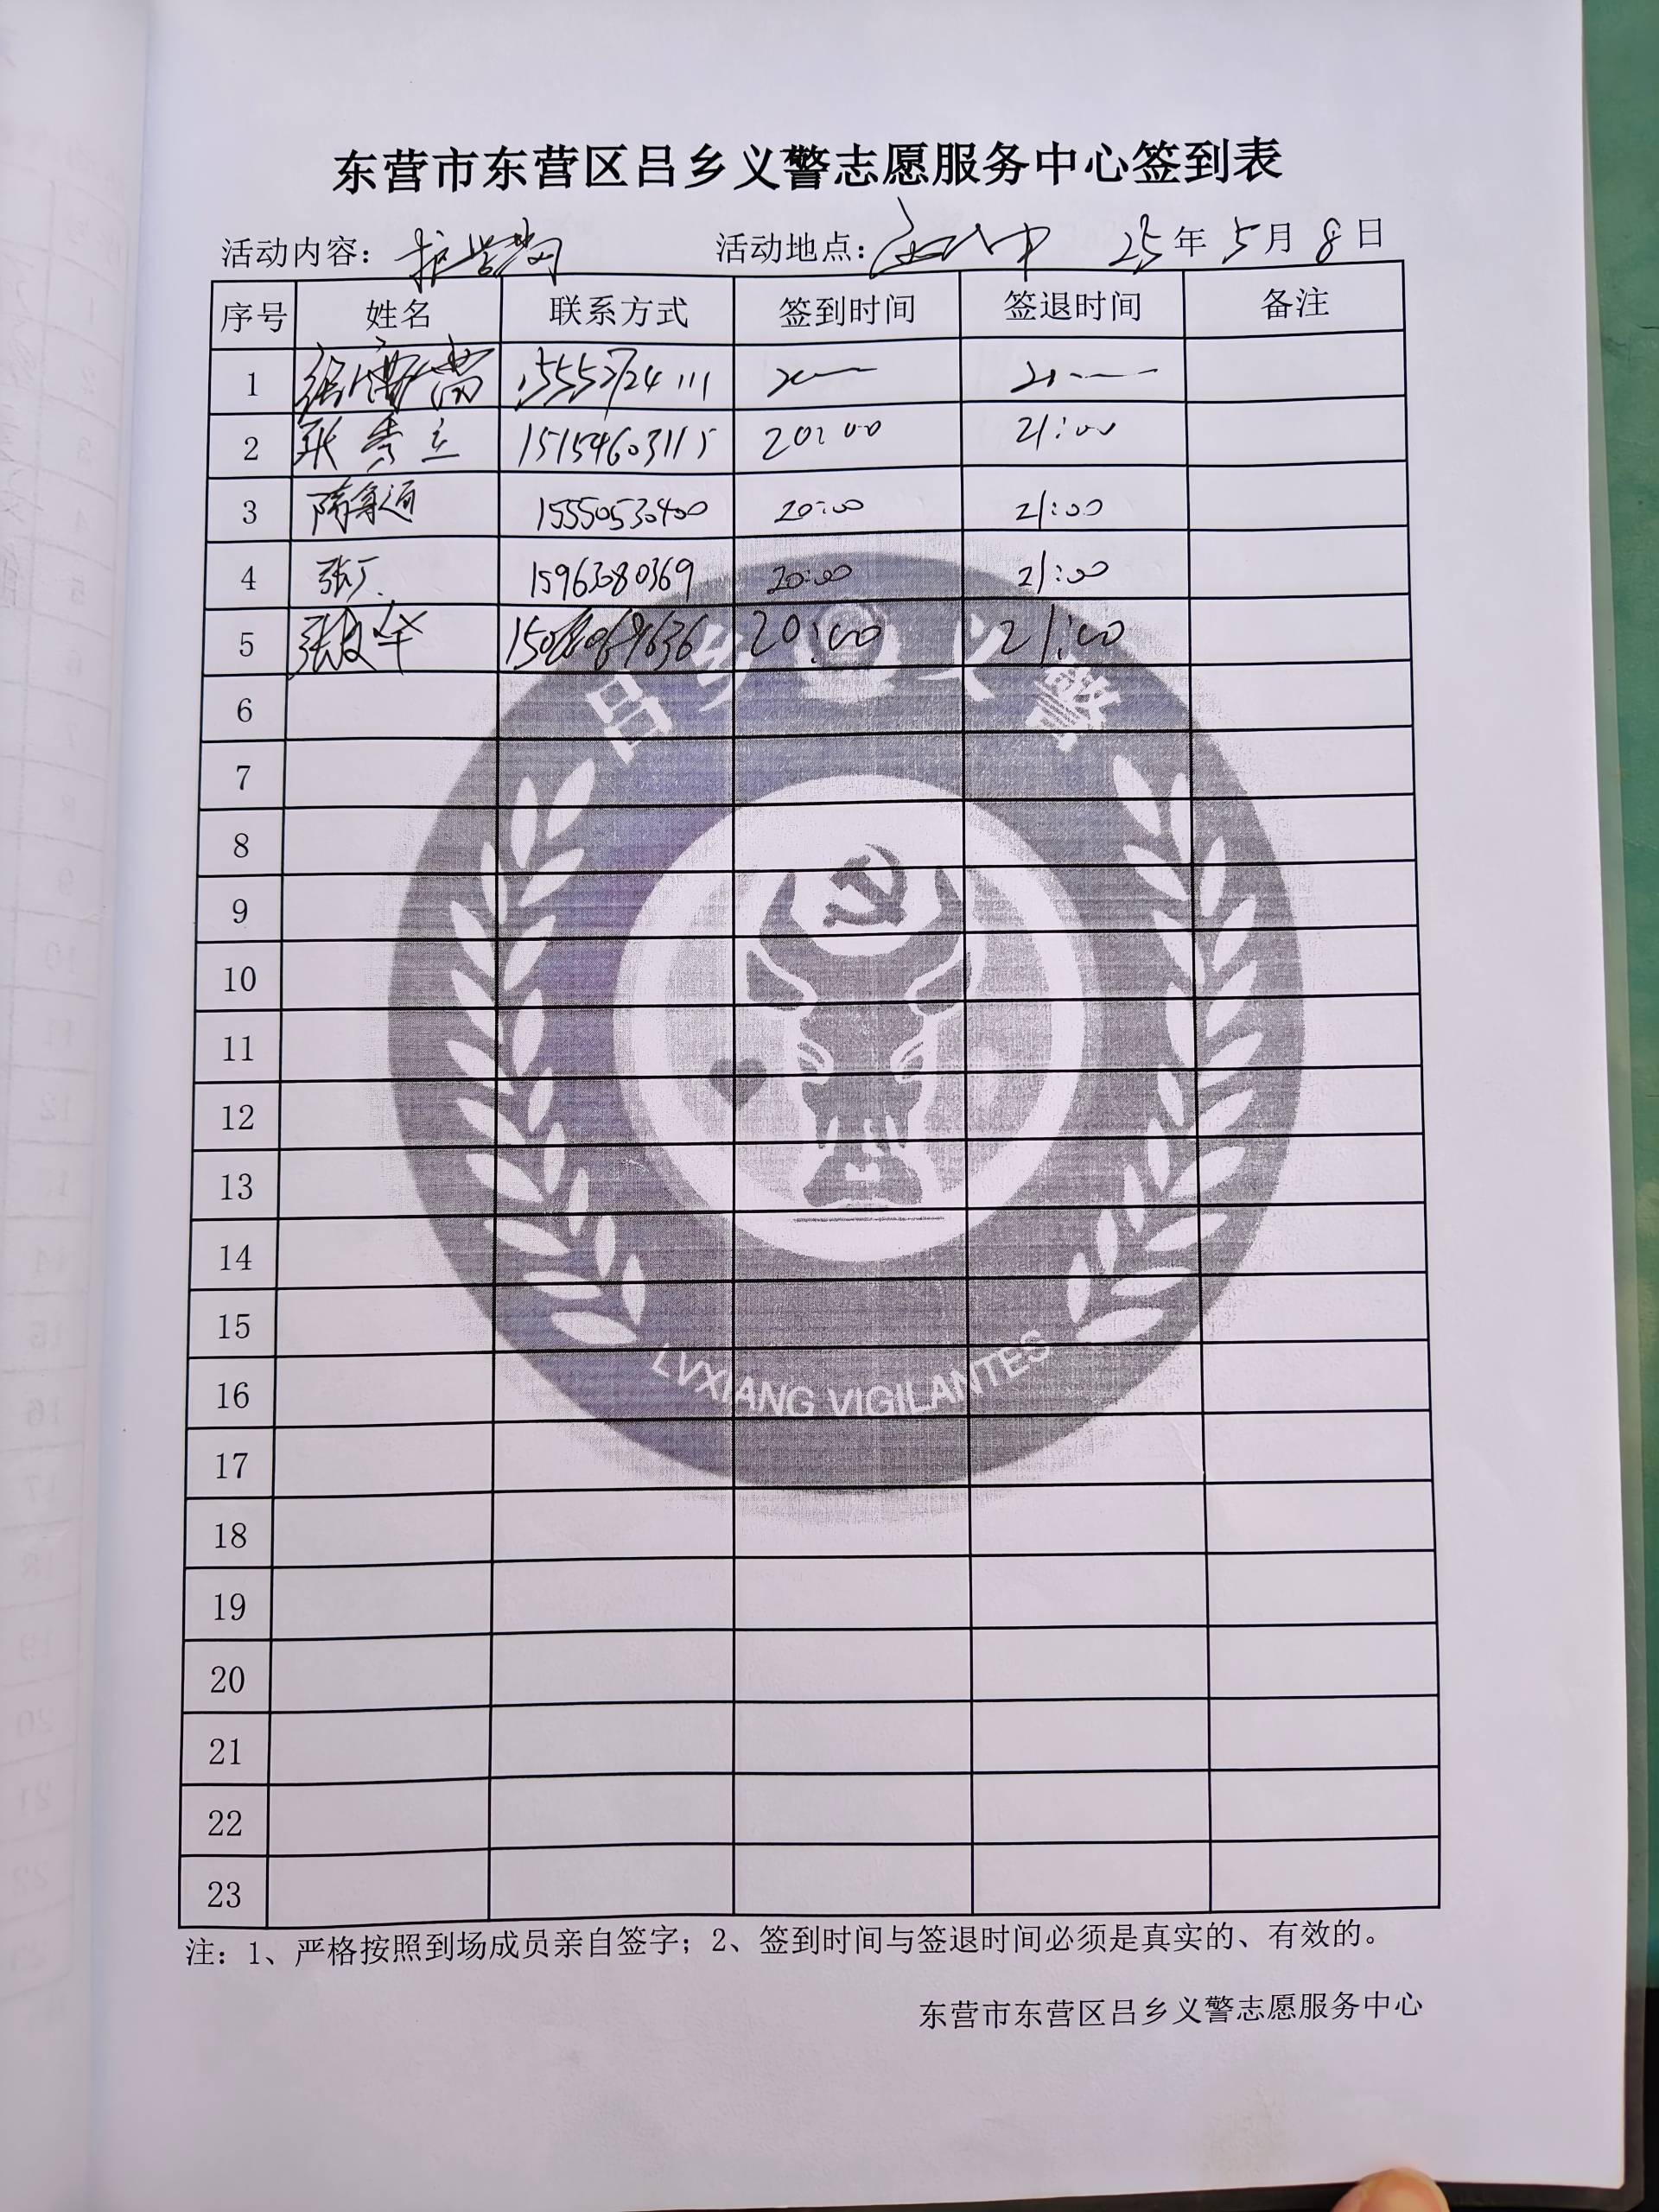 东营市东营区吕乡义警志愿服务中心签到表
活动内容：护学岗 活动地点： 八中 25年5月8日
序号 姓名 联系方式 签到时间 签退时间 备注
1
2 耿秀立 15154603115 20:00 21:00
3 隋鲁通 15550530400 20:00 21:00
4 张广 15963080369 20:00 21:00
5 张 华 20:00 21:00
6
7
8
9
10
11
12
13
14
15
16
17
18
19
20
21
22
23
吕乡义警
LVXIANG VIGILANTES
注：1、严格按照到场成员亲自签字；2、签到时间与签退时间必须是真实的、有效的。
东营市东营区吕乡义警志愿服务中心